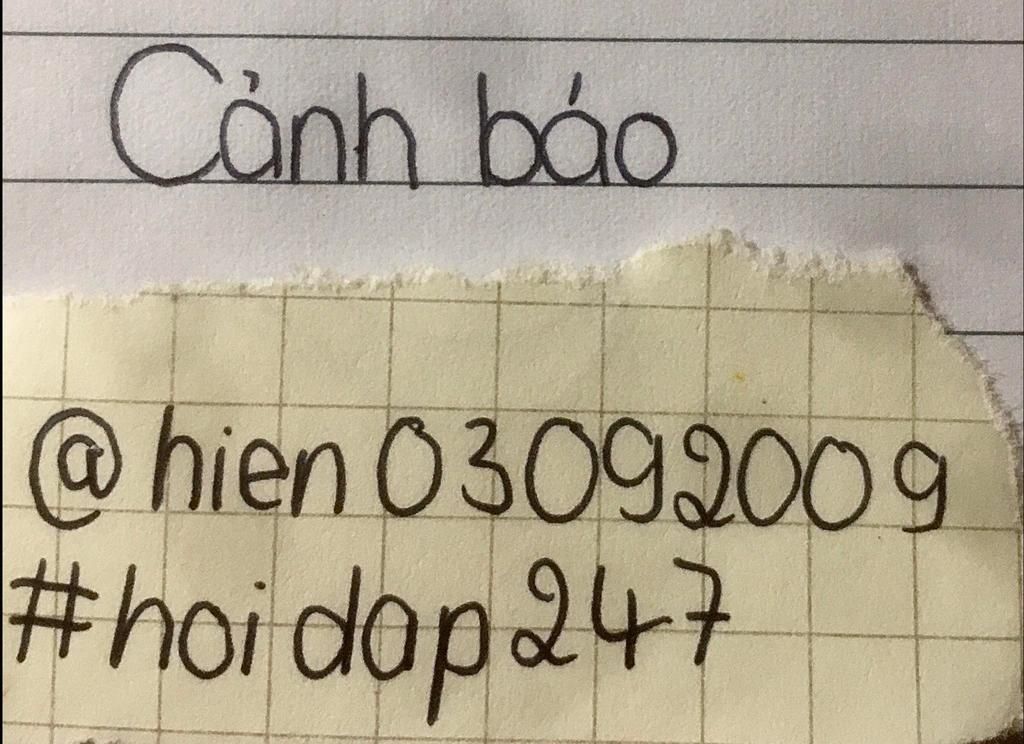 Cảnh báo
@hien03092009
#hoidap247